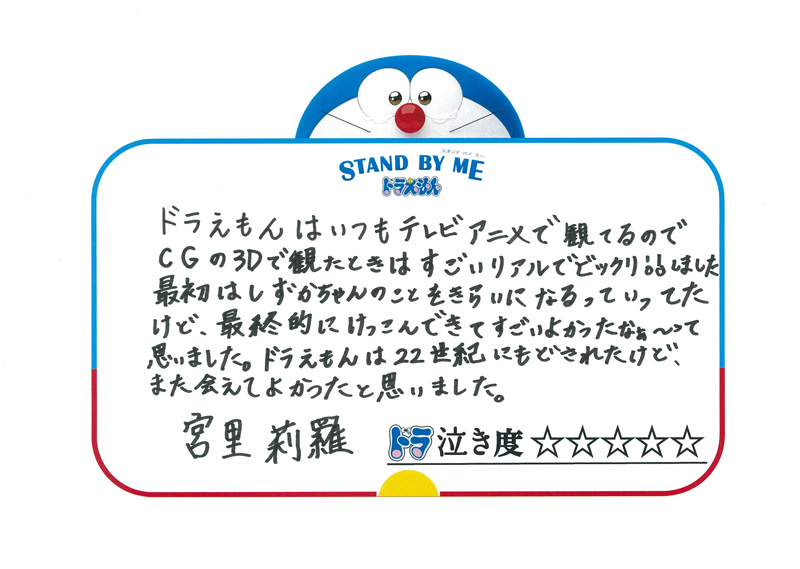 スタンド バイ ミー
STAND BY ME
ドラえもん
ドラえもんはいつもテレビアニメで観てるので
CGの3Dで観たときはすごいリアルでビックリしました
最初はしずかちゃんのことをきらいになるっていってた
けど、最終的にけっこんできてすごいよかったなぁ〜って
思いました。ドラえもんは22世紀にもどされたけど、
また会えてよかったと思いました。
宮里 莉羅
ドラ泣き度 ☆☆☆☆☆